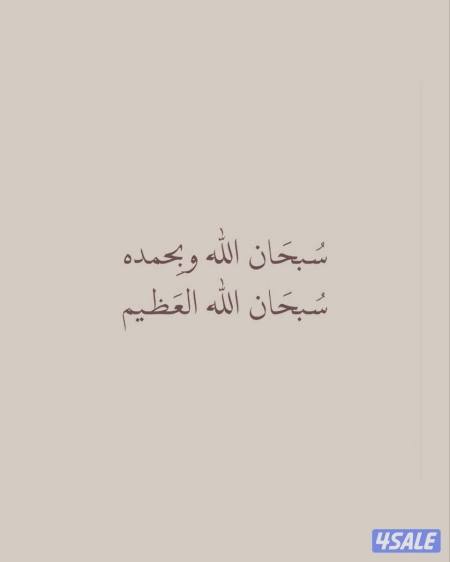 سُبحَان الله وبِحمده
سُبحَان الله العَظيم
4SALE